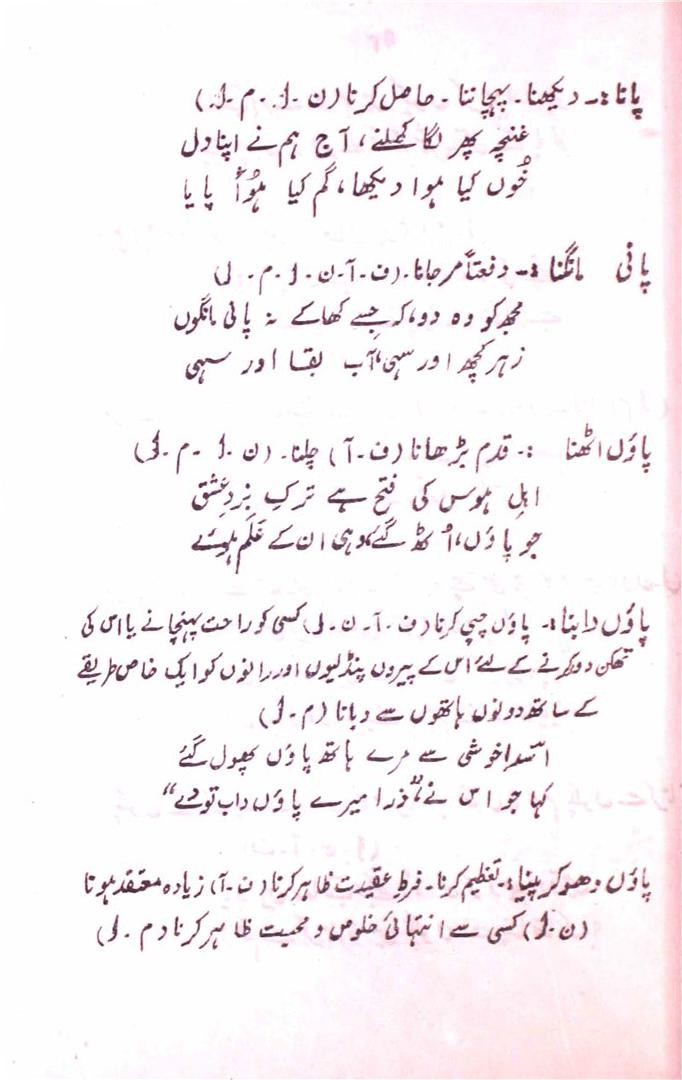 پانا:۔ دیکھنا۔ پہچاننا۔ حاصل کرنا (ن۔ل۔ م۔ل)
غنچہ پھر لگا کھلنے، آج ہم نے اپنا دل
خُوں کیا ہوا دیکھا، گم کیا ہُوا پایا
پانی مانگنا :۔ دفعتاً مر جانا۔ (ف۔آ۔ن۔ل۔م۔ل)
مجھ کو وہ دو، کہ جِسے کھا کے نہ پانی مانگوں
زہر کچھ اور سہی، آب بقا اور سہی
پاؤں اٹھنا :۔ قدم بڑھانا (ف۔آ) چلنا۔ (ن۔ل۔م۔ل)
اہلِ ہوس کی فتح ہے ترکِ نبردِ عشق
جو پاؤں، اُٹھ گئے، وہی ان کے عَلَم ہوئے
پاؤں دابنا:۔ پاؤں چپی کرنا (ف۔آ۔ن۔ل) کسی کو راحت پہنچانے یا اس کی
تھکن دور کرنے کے لئے اس کے پیروں پنڈلیوں اور رانوں کو ایک خاص طریقے
کے ساتھ دونوں ہاتھوں سے دبانا (م۔ل)
اسدؔ خوشی سے مرے ہاتھ پاؤں پھول گئے
کہا جو اس نے، ”ذرا میرے پاؤں داب تو دے“
پاؤں دھو کر پینا:۔ تعظیم کرنا۔ فرطِ عقیدت ظاہر کرنا (ف۔آ) زیادہ معتقد ہونا
(ن۔ل) کسی سے انتہائی خلوص و محبت ظاہر کرنا (م۔ل)